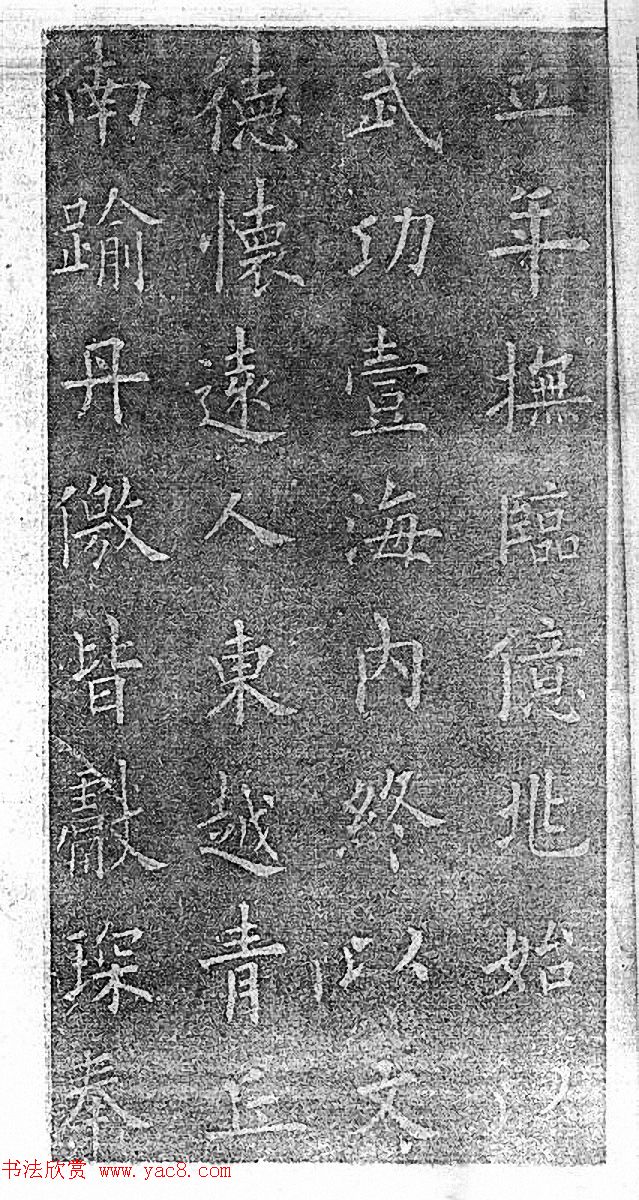 立年撫臨億兆始以
武功壹海內終以文
德懷遠人東越青丘
南踰丹徼皆獻琛奉
书法欣赏 www.yac8.com